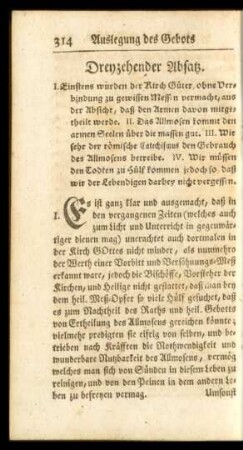 314 Auslegung des Gebots
Dreyzehender Absatz.
I. Einstens wurden der Kirch Güter, ohne Ver-
bindung zu gewissen Messen vermacht, aus
der Absicht, daß den Armen davon mitge-
theilt werde. II. Das Allmosen kommt den
armen Seelen über die massen gut. III. Wie
sehr der römische Catechismus den Gebrauch
des Allmosens betreibe. IV. Wir müssen
den Todten zu Hülf kommen jedoch so, daß
wir der Lebendigen darbey nicht vergessen.
I. Es ist ganz klar und ausgemacht, daß in
den vergangenen Zeiten (welches auch
zum Licht und Unterricht in gegenwär-
tiger dienen mag) unerachtet auch dortmalen in
der Kirch GOttes nicht minder, als nunmehro
der Werth einer Vorbitt und Versöhnungs-Meß
erkannt ware, jedoch die Bischöffe, Vorsteher der
Kirchen, und Heilige nicht gestattet, daß man bey
dem heil. Meß-Opfer so viele Hülf gesuchet, daß
es zum Nachtheil des Raths und heil. Gebotts
von Ertheilung des Allmosens gereichen könnte;
vielmehr predigten sie eifrig von selben, und be-
trieben nach Kräfften die Nothwendigkeit und
wunderbare Nutzbarkeit des Allmosens, vermög
welches man sich von Sünden in diesem Leben zu
reinigen, und von den Peinen in dem andern Le-
ben zu befreyen vermag. Umsonst